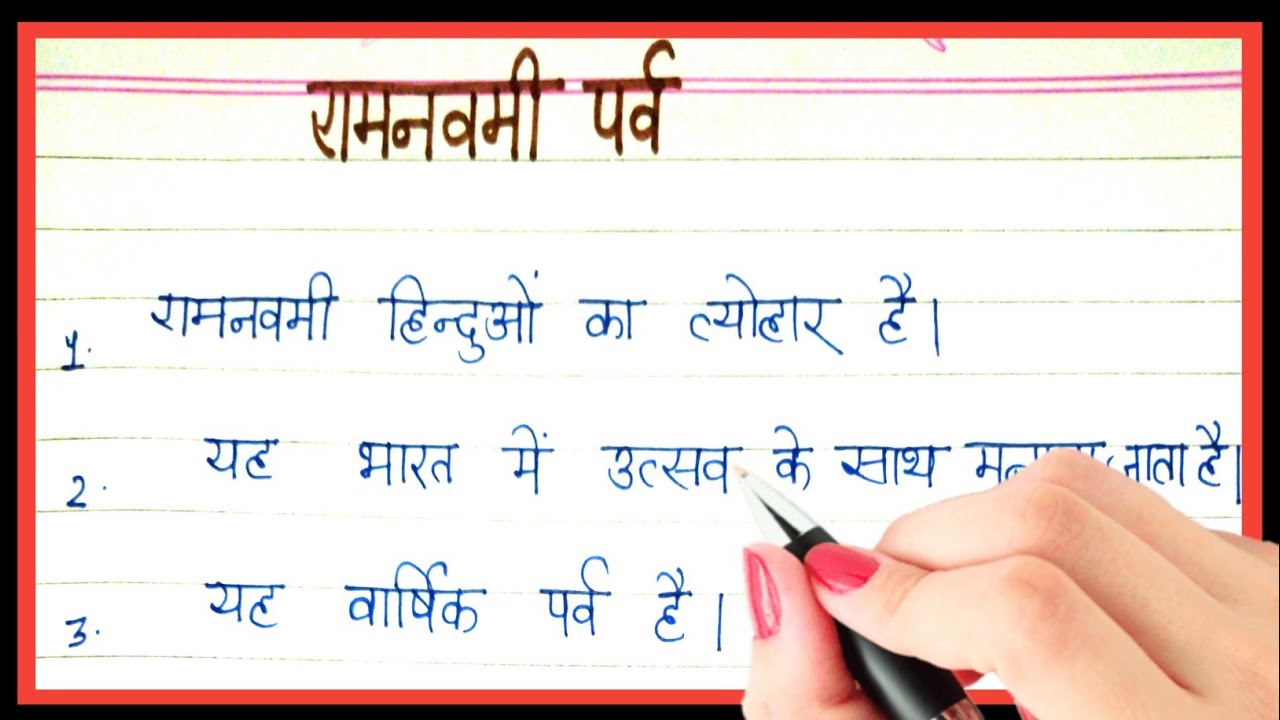 रामनवमी पर्व
1. रामनवमी हिन्दुओं का त्योहार है।
2. यह भारत में उत्सव के साथ मनाया जाता है।
3. यह वार्षिक पर्व है।